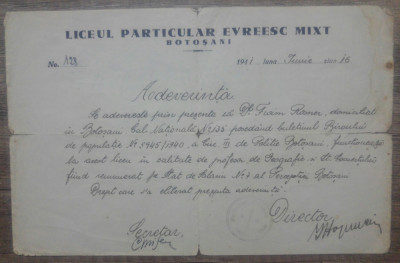 LICEUL PARTICULAR EVREESC MIXT
BOTOȘANI
No. 128 1941 luna Iunie ziua 16
Adeverință
Se adeverește prin prezenta că Dl. domiciliat
în Botoșani Cal. Națională Nº 133 posedând buletinul Biroului
de populație Nº 5965/1940, a Circ. III de Poliție Botoșani, funcționează
la acest liceu în calitate de profesor de Geografie și
fiind remunerat pe Stat de salarii Nº 4 al Percepției Botoșani
Drept care s'a eliberat prezenta adeverință.
Director
Secretar,